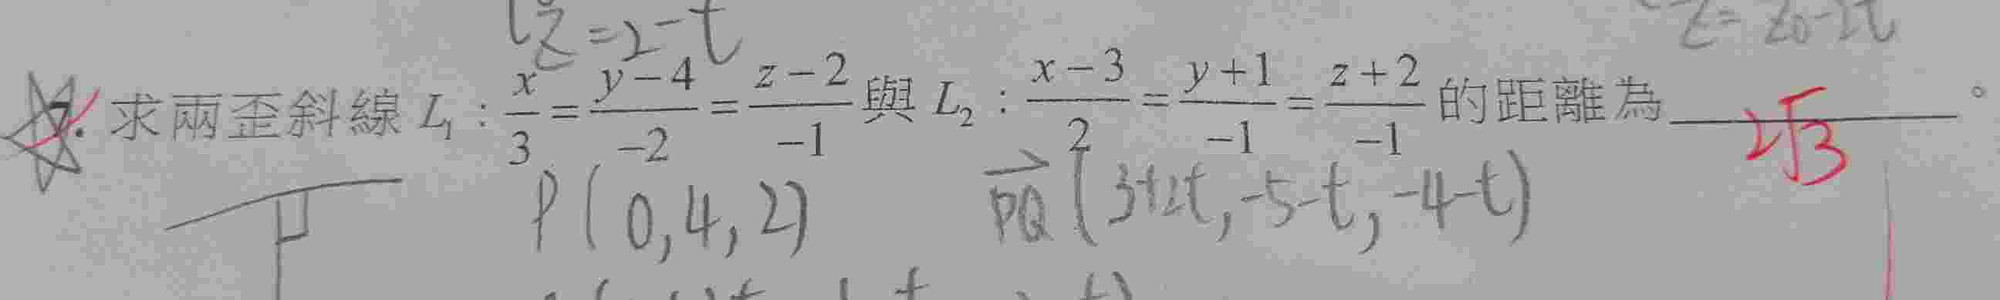 z=2-t
z=z₀-2t
7. 求兩歪斜線 L₁ : x/3 = (y-4)/-2 = (z-2)/-1 與 L₂ : (x-3)/2 = (y+1)/-1 = (z+2)/-1 的距離為 2√3 。
P(0,4,2) PQ⃗(3+2t,-5-t,-4-t)